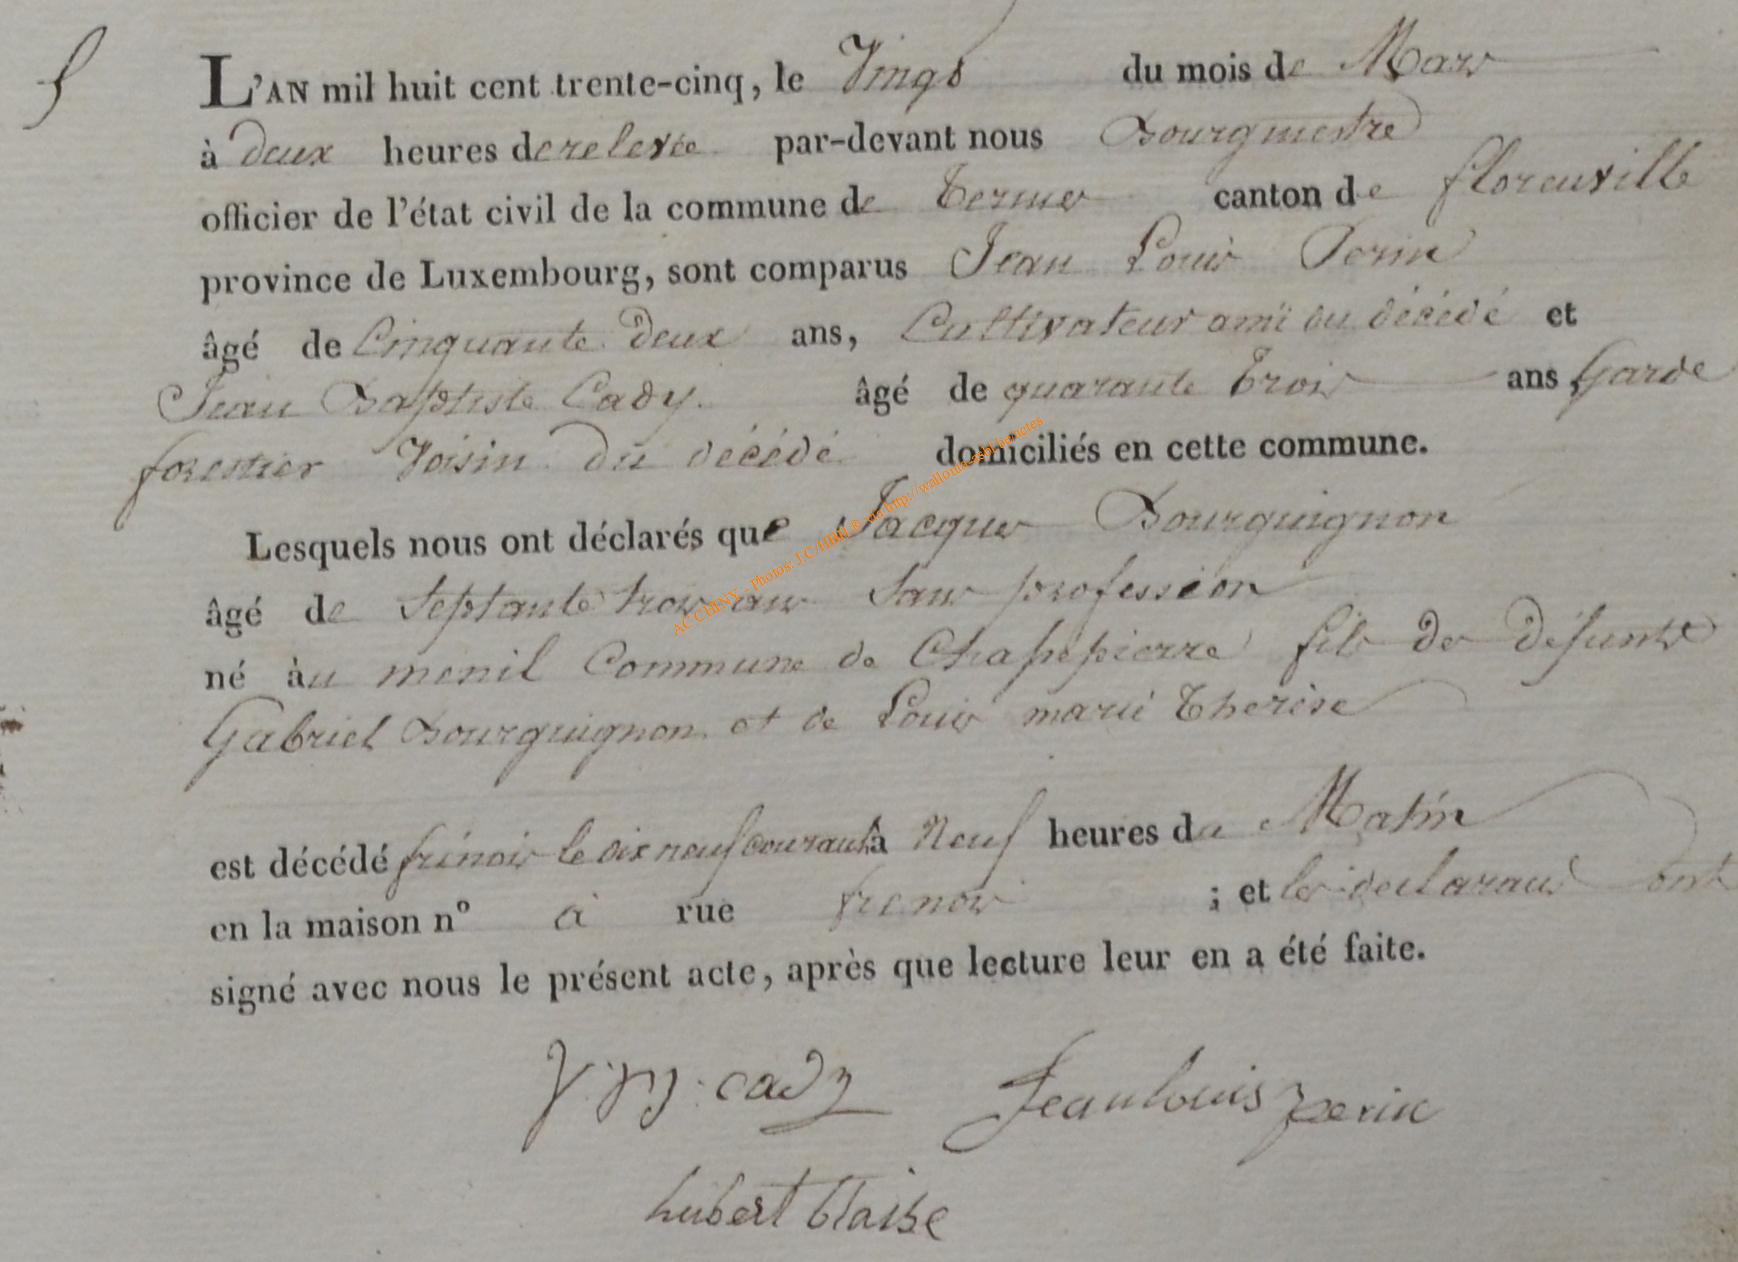 5
L'AN mil huit cent trente-cinq, le Vingt du mois de Mars
à deux heures de relevée par-devant nous Bourgmestre
officier de l'état civil de la commune de Termes canton de florenville
province de Luxembourg, sont comparus Jean Louis Perin
âgé de Cinquante deux ans, Cultivateur ami du décédé et
Jean Baptiste Cady. âgé de quarante trois ans Garde
forestier Voisin du décédé domiciliés en cette commune.
Lesquels nous ont déclarés que Jacques Bourguignon
âgé de septante trois ans sans profession
né àu menil Commune de Chapepierre fils de défunts
Gabriel Bourguignon et de Louis marie Therèse
est décédé frénois le dix neuf courant à Neuf heures du Matin
en la maison n° à rue frenois ; et les declarans ont
signé avec nous le présent acte, après que lecture leur en a été faite.
cady Jean louis perin
hubert blaise
ACCHINY - Photos: J.C. http://wallonia-asbl.be/actes